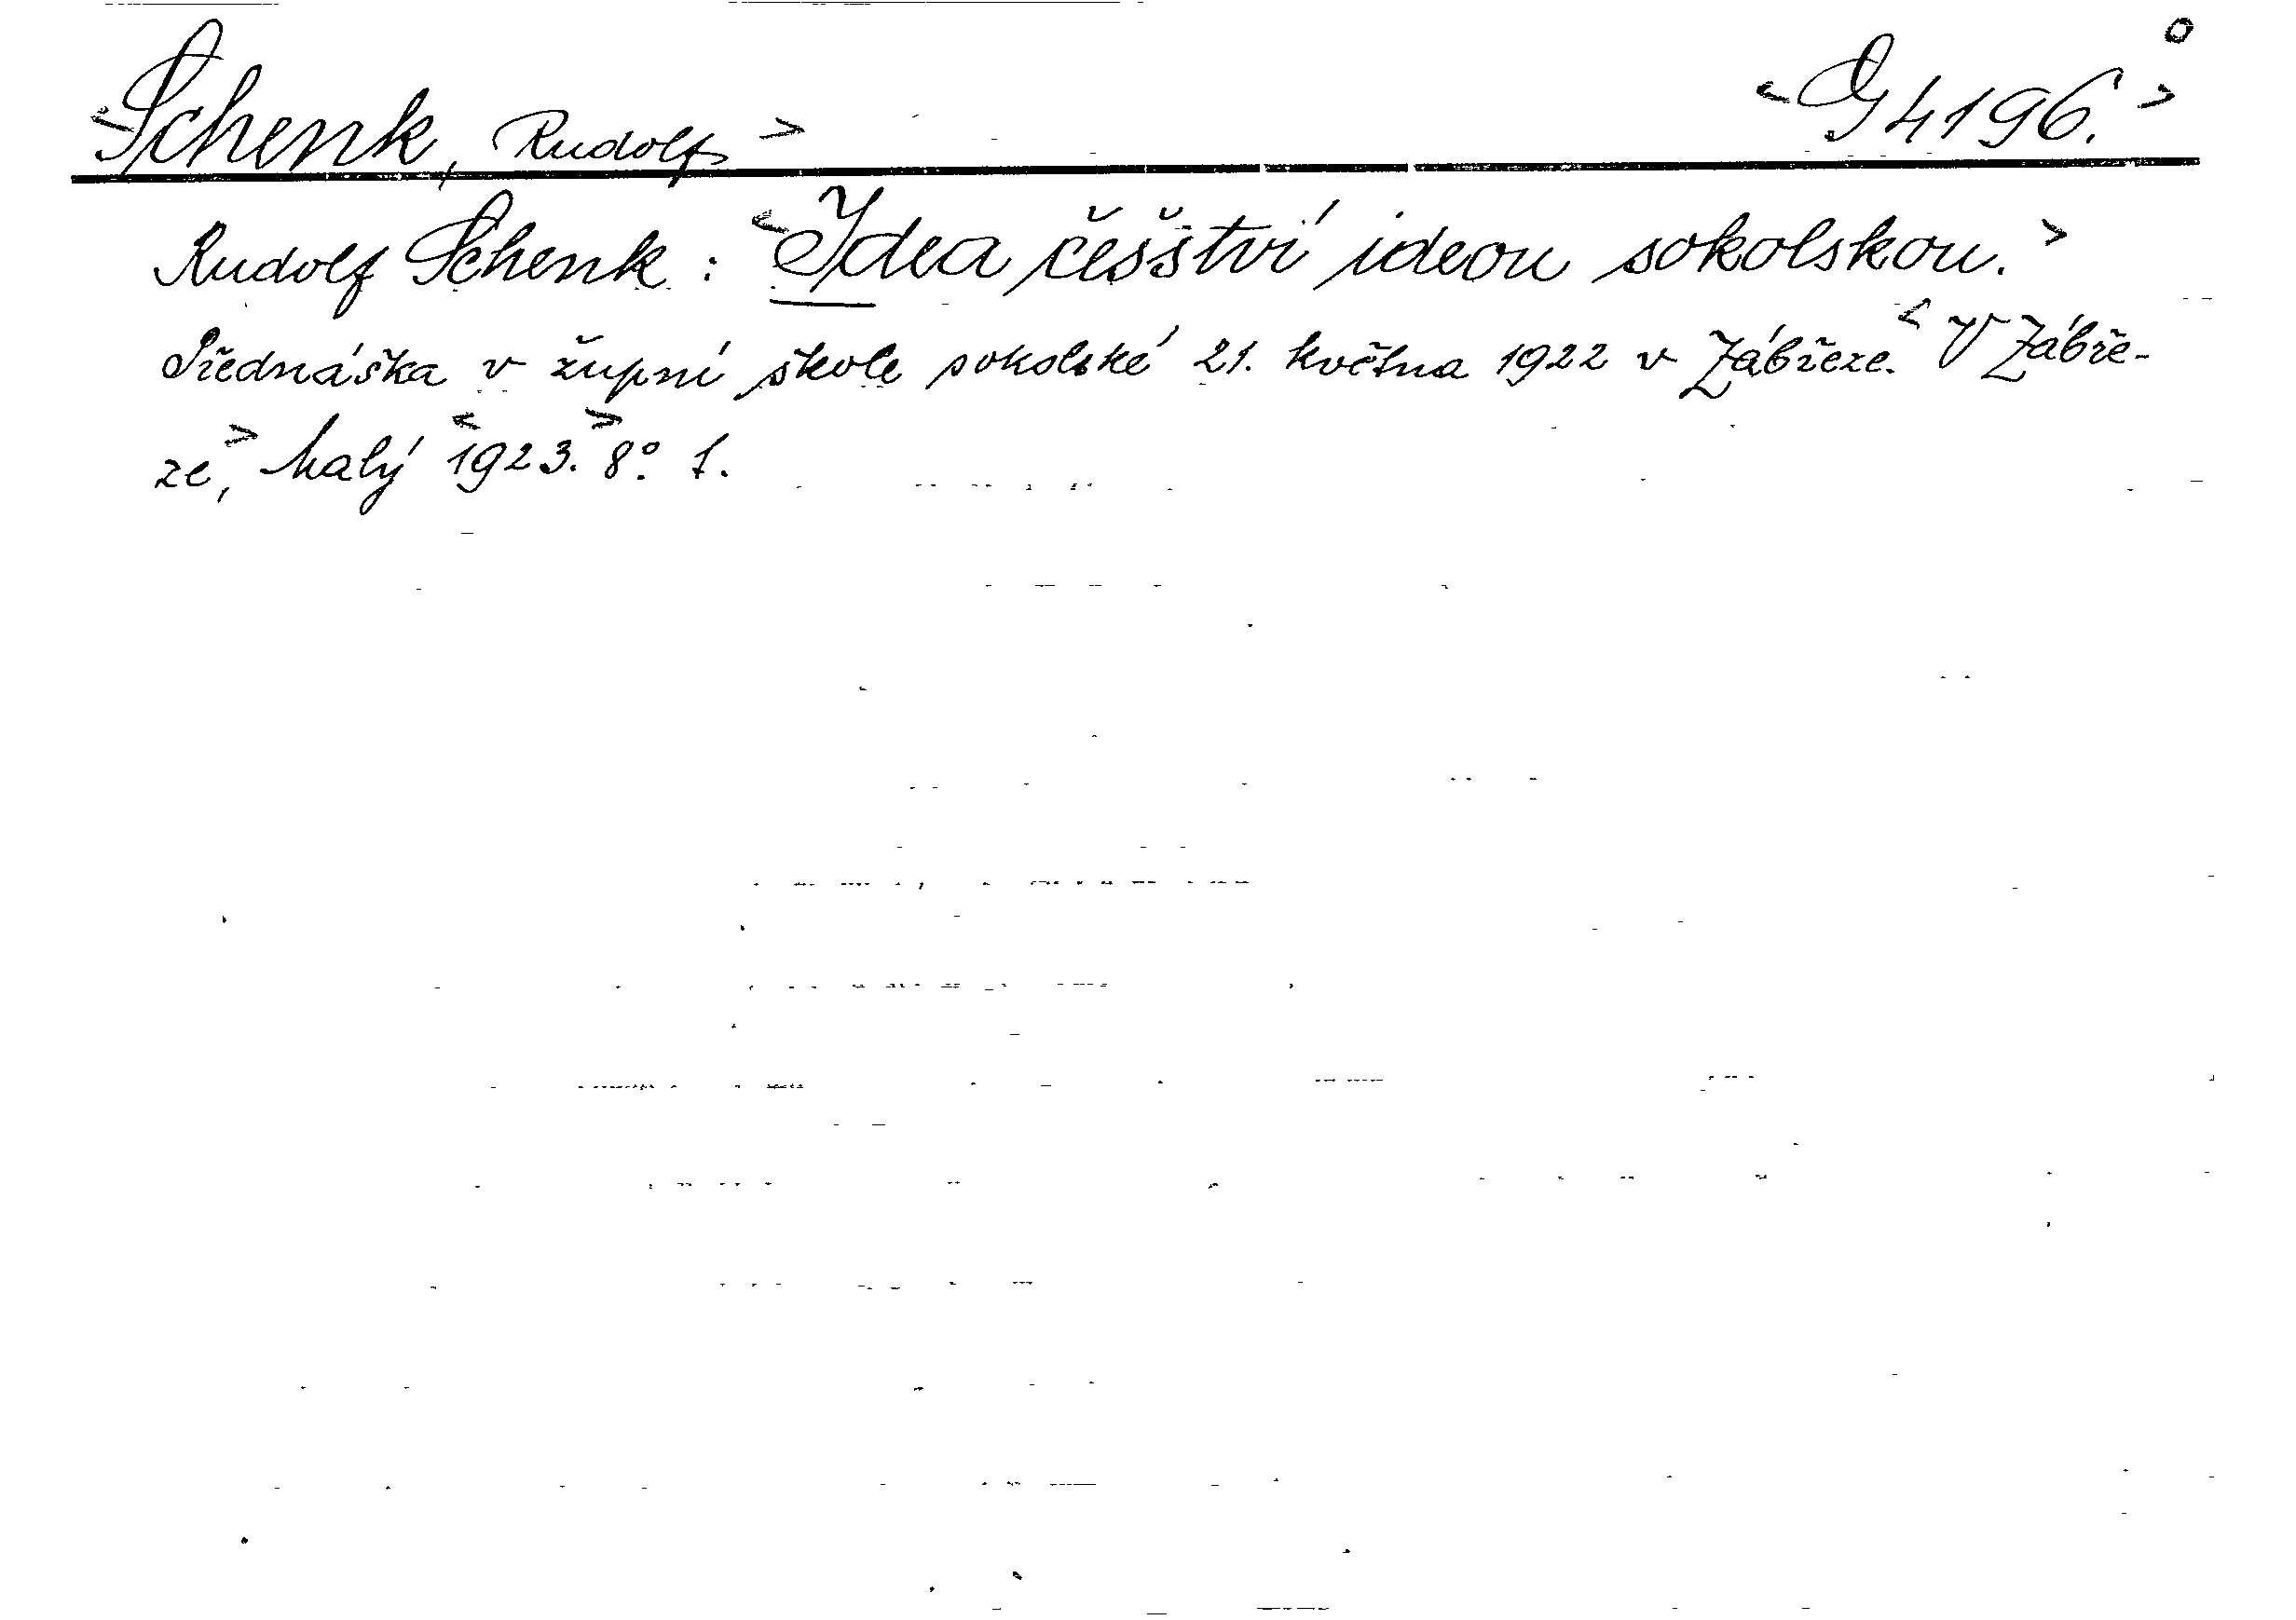 <Schenk, Rudolf> <G 4196.> o
Rudolf Schenk: <Idea češství ideou sokolskou.>
Přednáška v župní škole sokolské 21. května 1922 v Zábřeze. <V Zábře-
ze,> Malý <1923.> 8°. 1.